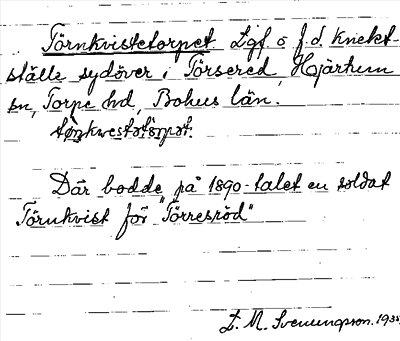 Törnkvistetorpet. Lgf o f.d. knekt-
ställe sydöver i Törsered, Hjärtum
sn, Torpe hd, Bohus län.
Där bodde på 1890-talet en soldat
Törnkvist för "Törresröd"
L. M. Svenungsson. 1935